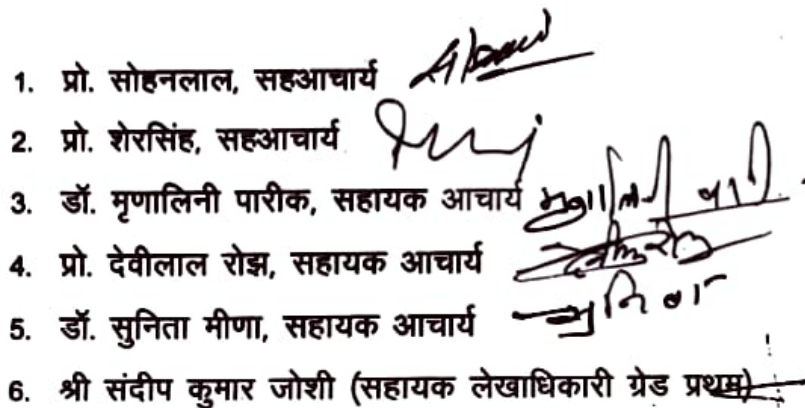 1. प्रो. सोहनलाल, सहआचार्य
2. प्रो. शेरसिंह, सहआचार्य
3. डॉ. मृणालिनी पारीक, सहायक आचार्य
4. प्रो. देवीलाल रोझ, सहायक आचार्य
5. डॉ. सुनिता मीणा, सहायक आचार्य
6. श्री संदीप कुमार जोशी (सहायक लेखाधिकारी ग्रेड प्रथम)